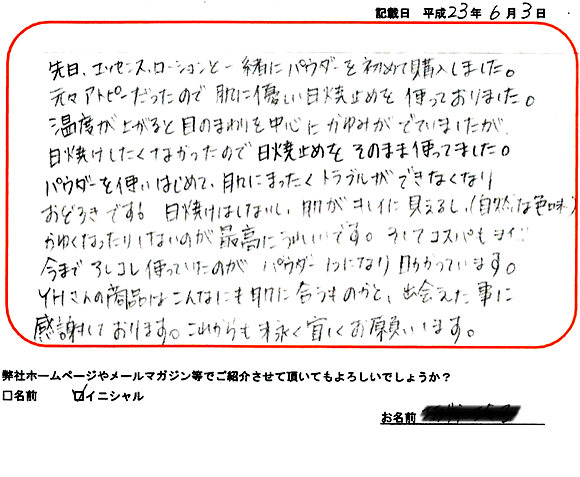 記載日 平成23年6月3日
先日、エッセンス、ローションと一緒にパウダーを初めて購入しました。
元々アトピーだったので肌に優しい日焼止めを使っておりました。
温度が上がると目のまわりを中心にかゆみがでていましたが
日焼けしたくなかったので日焼止めをそのまま使ってました。
パウダーを使いはじめて、肌にまったくトラブルができなくなり
おどろきです。日焼けはしないし、肌がキレイに見えるし、(自然な色味)
かゆくなったりしないのが最高にうれしいです。そしてコスパもヨイ!!
今までアレコレ使っていたのがパウダー1つになり助かっています。
YHさんの商品はこんなにも肌に合うものかと、出会えた事に
感謝しております。これからも末永く宜しくお願いします。
弊社ホームページやメールマガジン等でご紹介させて頂いてもよろしいでしょうか?
□名前 ☑イニシャル
お名前